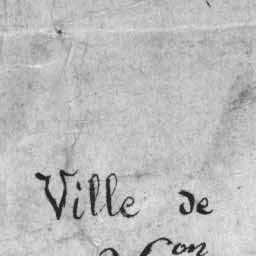 Ville de